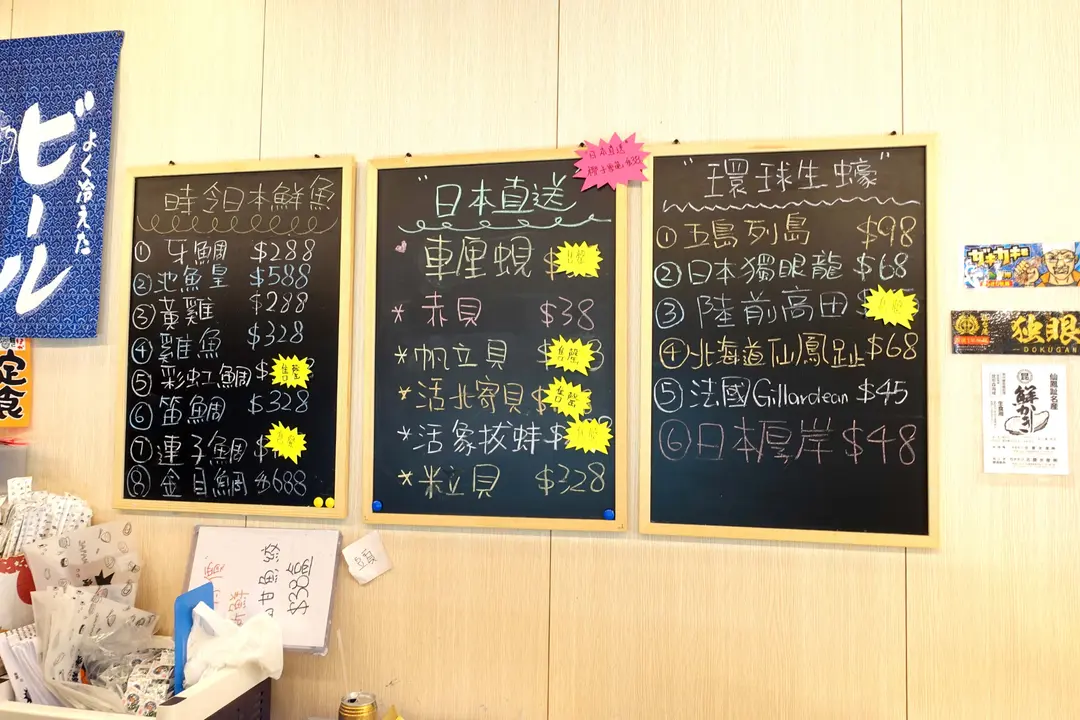 よく冷えた
ビール
定食
時令日本鮮魚
① 牙鯛 $288
② 池魚皇 $588
③ 黃雞 $288
④ 雞魚 $328
⑤ 彩虹鯛 $
售罄
⑥ 笛鯛 $328
⑦ 連子鯛 $
⑧ 金目鯛 $688
"日本直送"
車厘蜆 $
售罄
* 赤貝 $38
* 帆立貝 $
售罄
* 活北寄貝 $
售罄
* 活象拔蚌 $
售罄
* 粒貝 $328
日本直送
"環球生蠔"
① 五島列島 $98
② 日本獨眼龍 $68
③ 陸前高田 $
④ 北海道仙鳳趾 $68
⑤ 法國Gillardean $45
⑥ 日本厚岸 $48
独眼
DOKUGAN
仙鳳趾名産
鮮かき
生食用
$38